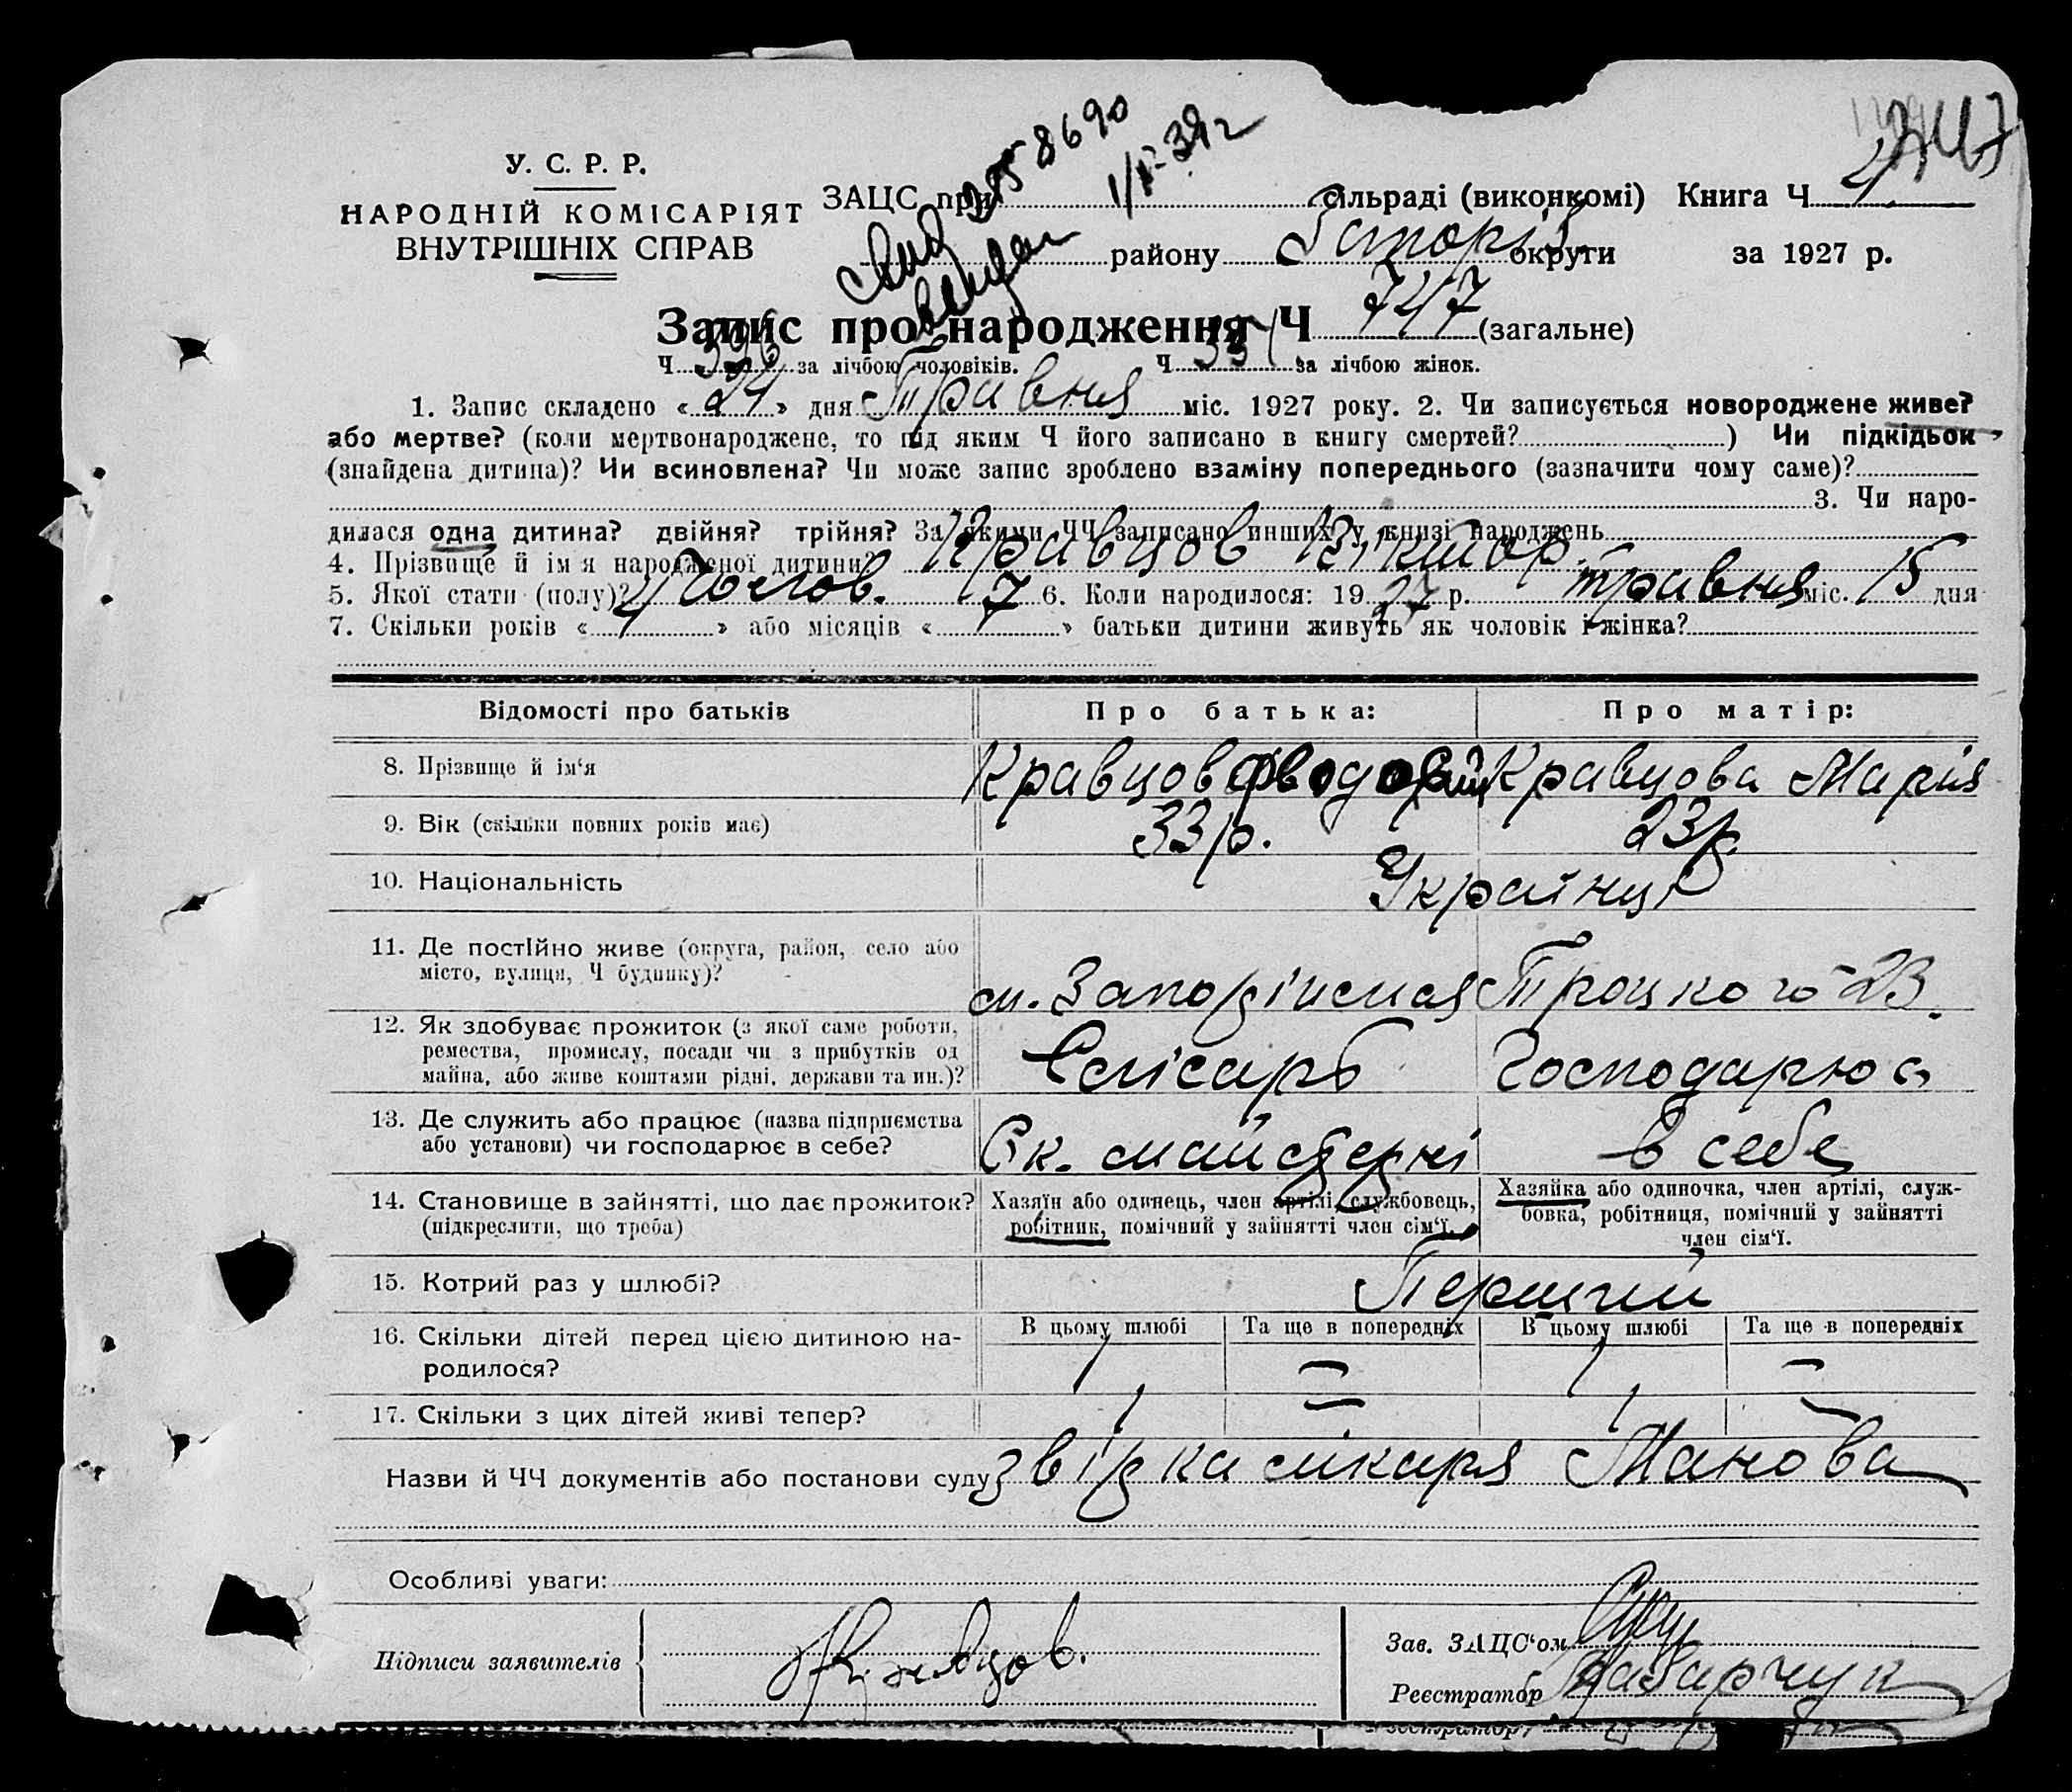 У. С. Р. Р.
НАРОДНІЙ КОМІСАРІЯТ
ВНУТРІШНІХ СПРАВ
ЗАЦС при сільраді (виконкомі) Книга Ч
району округи за 1927 р.
8690
Запис про народження Ч 747 (загальне)
Ч 396 за лічбою чоловіків. Ч 351 за лічбою жінок.
1. Запис складено « 24 » дня Травня міс. 1927 року. 2. Чи записується новороджене живе?
або мертве? (коли мертвонароджене, то під яким Ч його записано в книгу смертей? ) Чи підкідьок
(знайдена дитина)? Чи всиновлена? Чи може запис зроблено взаміну попереднього (зазначити чому саме)?
3. Чи наро-
дилася одна дитина? двійня? трійня? За якими ЧЧ записано инших у книзі народжень
4. Прізвище й ім'я народженої дитини? Кравцов Віктор.
5. Якої стати (полу)? Чолов. 6. Коли народилося: 1927 р. травня міс. 15 дня
7. Скільки років « 4 » або місяців « 7 » батьки дитини живуть як чоловік і жінка?
Відомості про батьків
Про батька:
Про матір:
8. Прізвище й ім'я
Кравцов
Кравцова Марія
9. Вік (скільки повних років має)
33 р.
23 р.
10. Національність
Українці
11. Де постійно живе (округа, район, село або
місто, вулиця, Ч будинку)?
м. Запоріжжя Троцького 23.
12. Як здобуває прожиток (з якої саме роботи,
ремества, промислу, посади чи з прибутків од
майна, або живе коштами рідні, держави та ин.)?
Слісарь
Господарює
13. Де служить або працює (назва підприємства
або установи) чи господарює в себе?
майстерні
в себе
14. Становище в зайнятті, що дає прожиток?
(підкреслити, що треба)
Хазяїн або одинець, член артілі, службовець,
робітник, помічний у зайнятті член сім'ї.
Хазяйка або одиночка, член артілі, служ-
бовка, робітниця, помічний у зайнятті
член сім'ї.
15. Котрий раз у шлюбі?
Перший
16. Скільки дітей перед цією дитиною на-
родилося?
В цьому шлюбі Та ще в попередніх В цьому шлюбі Та ще в попередніх
1 — 1 —
17. Скільки з цих дітей живі тепер?
1 — 1 —
Назви й ЧЧ документів або постанови суду звідка лікаря Манова
Особливі уваги:
Підписи заявителів
Кравцов.
Зав. ЗАЦС'ом
Реєстратор